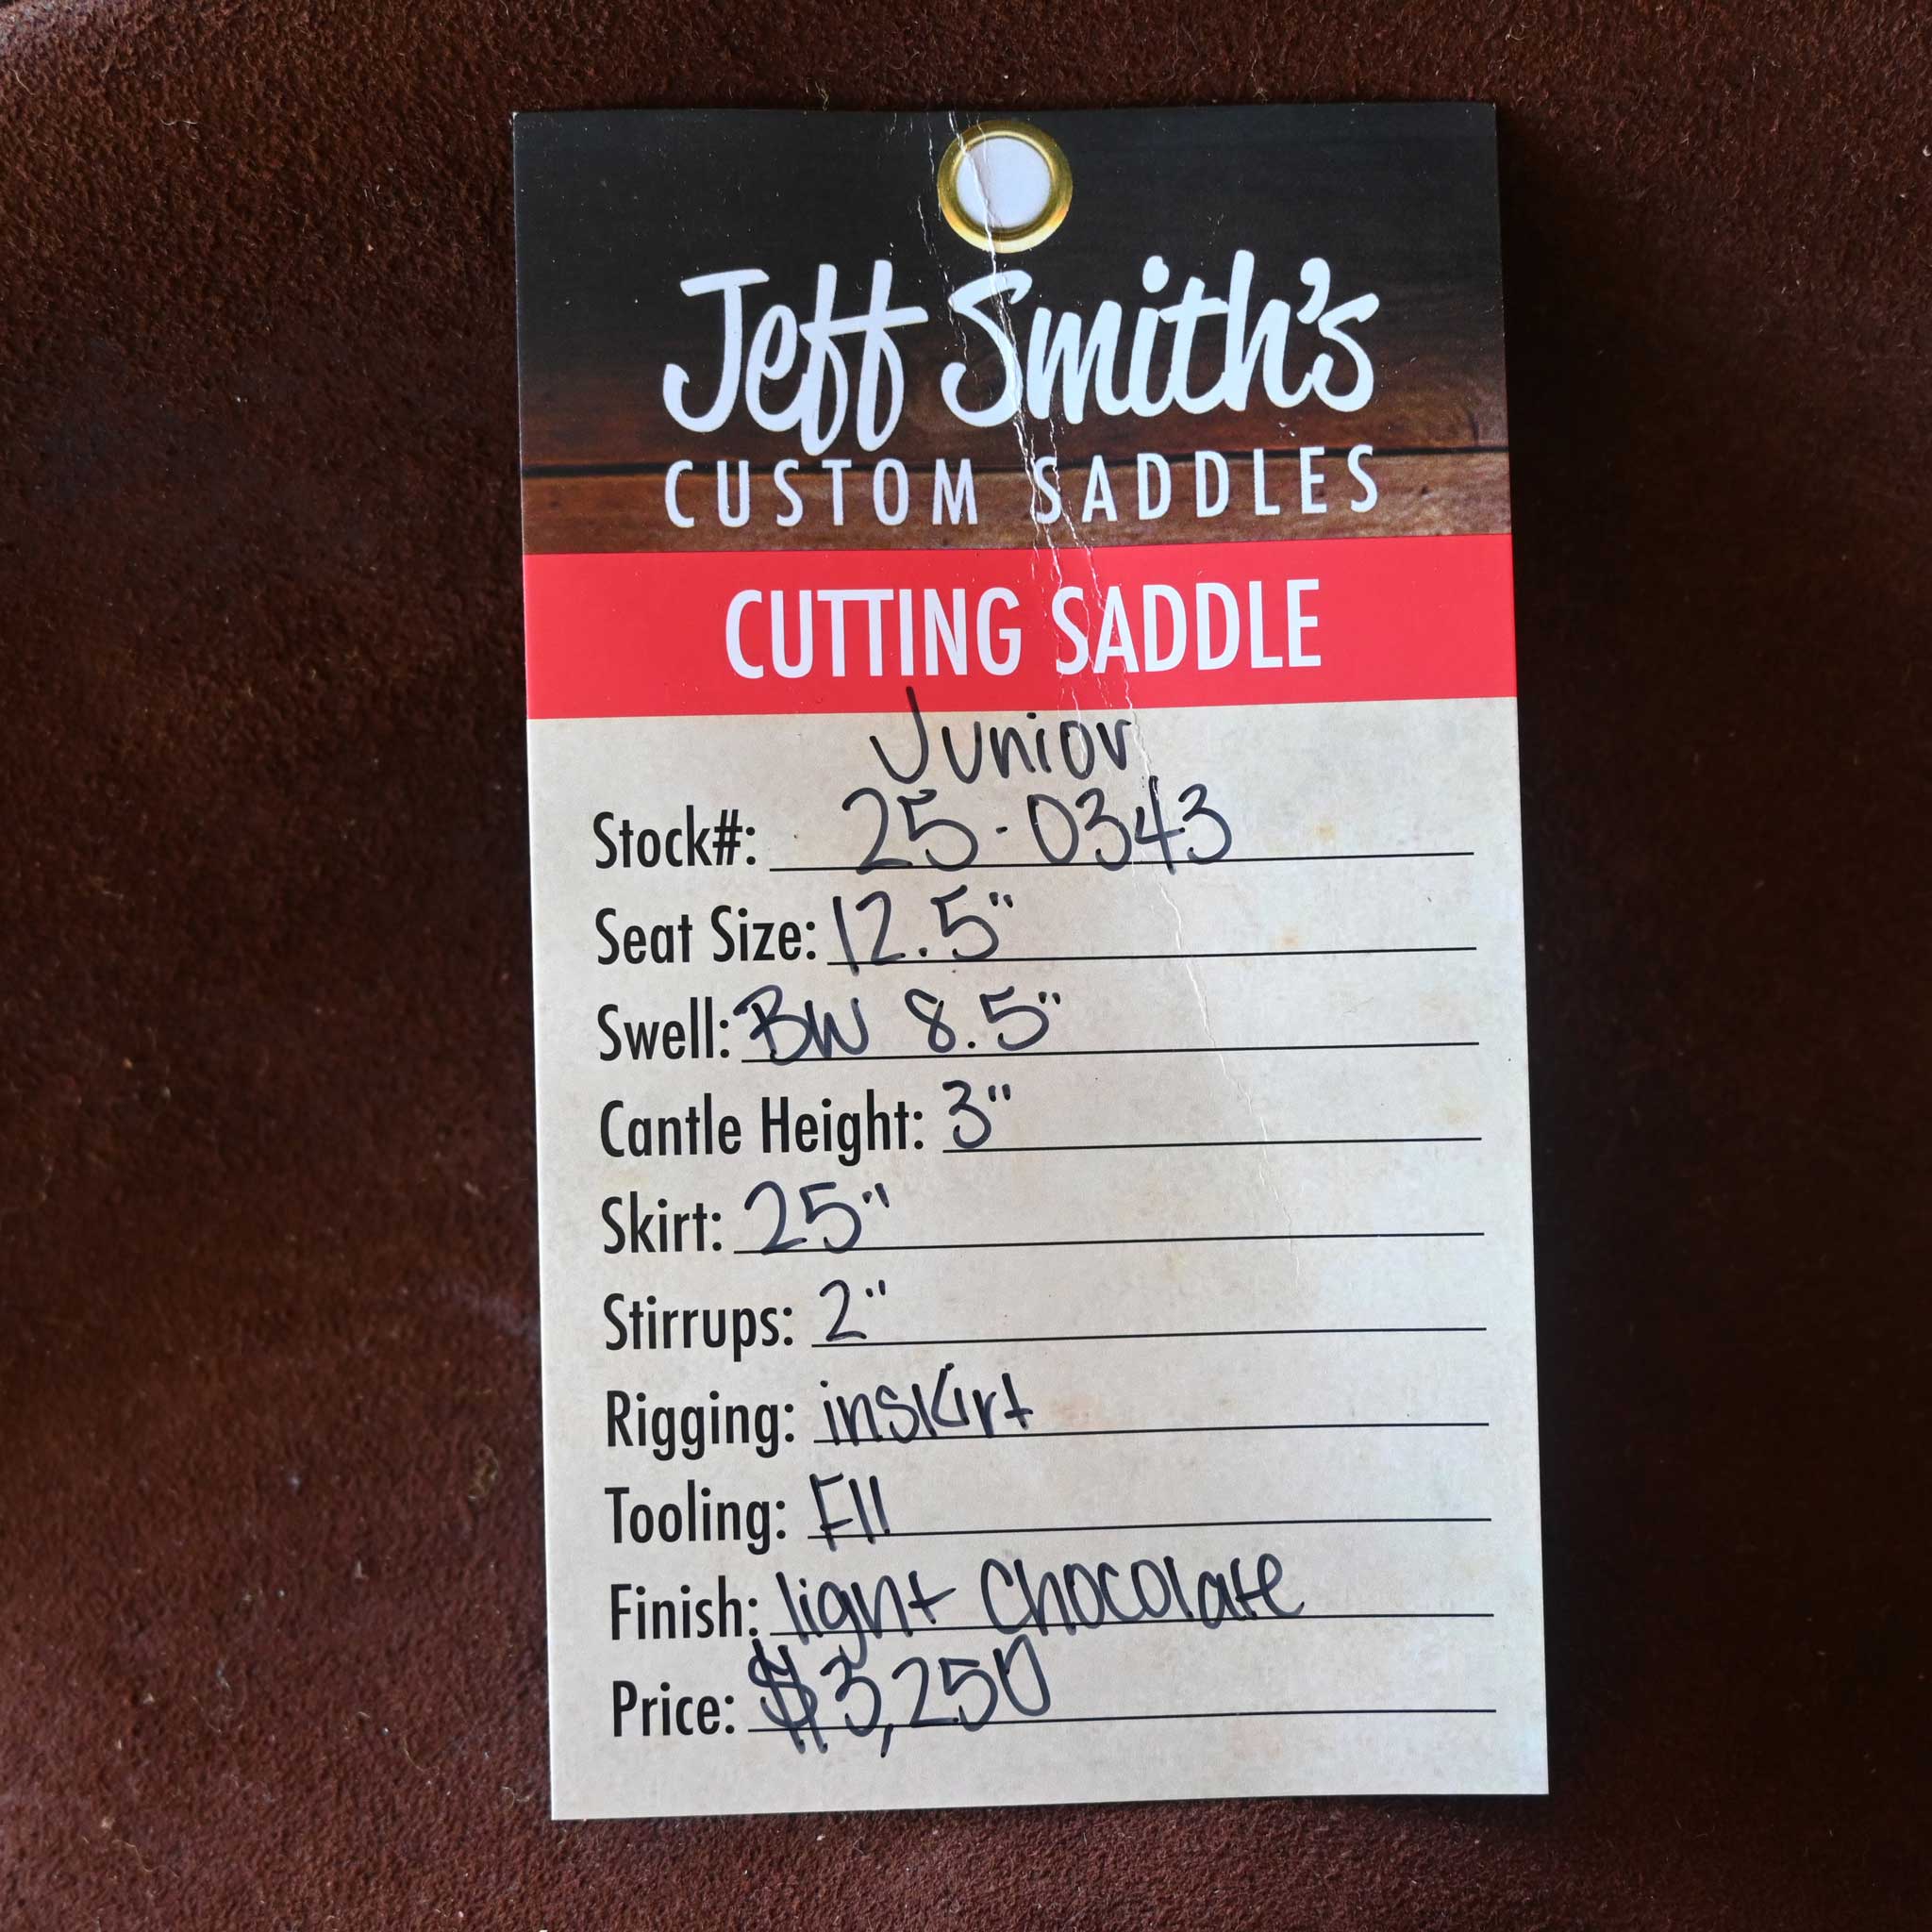 Jeff Smith's
CUSTOM SADDLES
CUTTING SADDLE
Junior
Stock#: 25-0343
Seat Size: 12.5"
Swell: BW 8.5"
Cantle Height: 3"
Skirt: 25"
Stirrups: 2"
Rigging: inskirt
Tooling: E11
Finish: light Chocolate
Price: $3,250